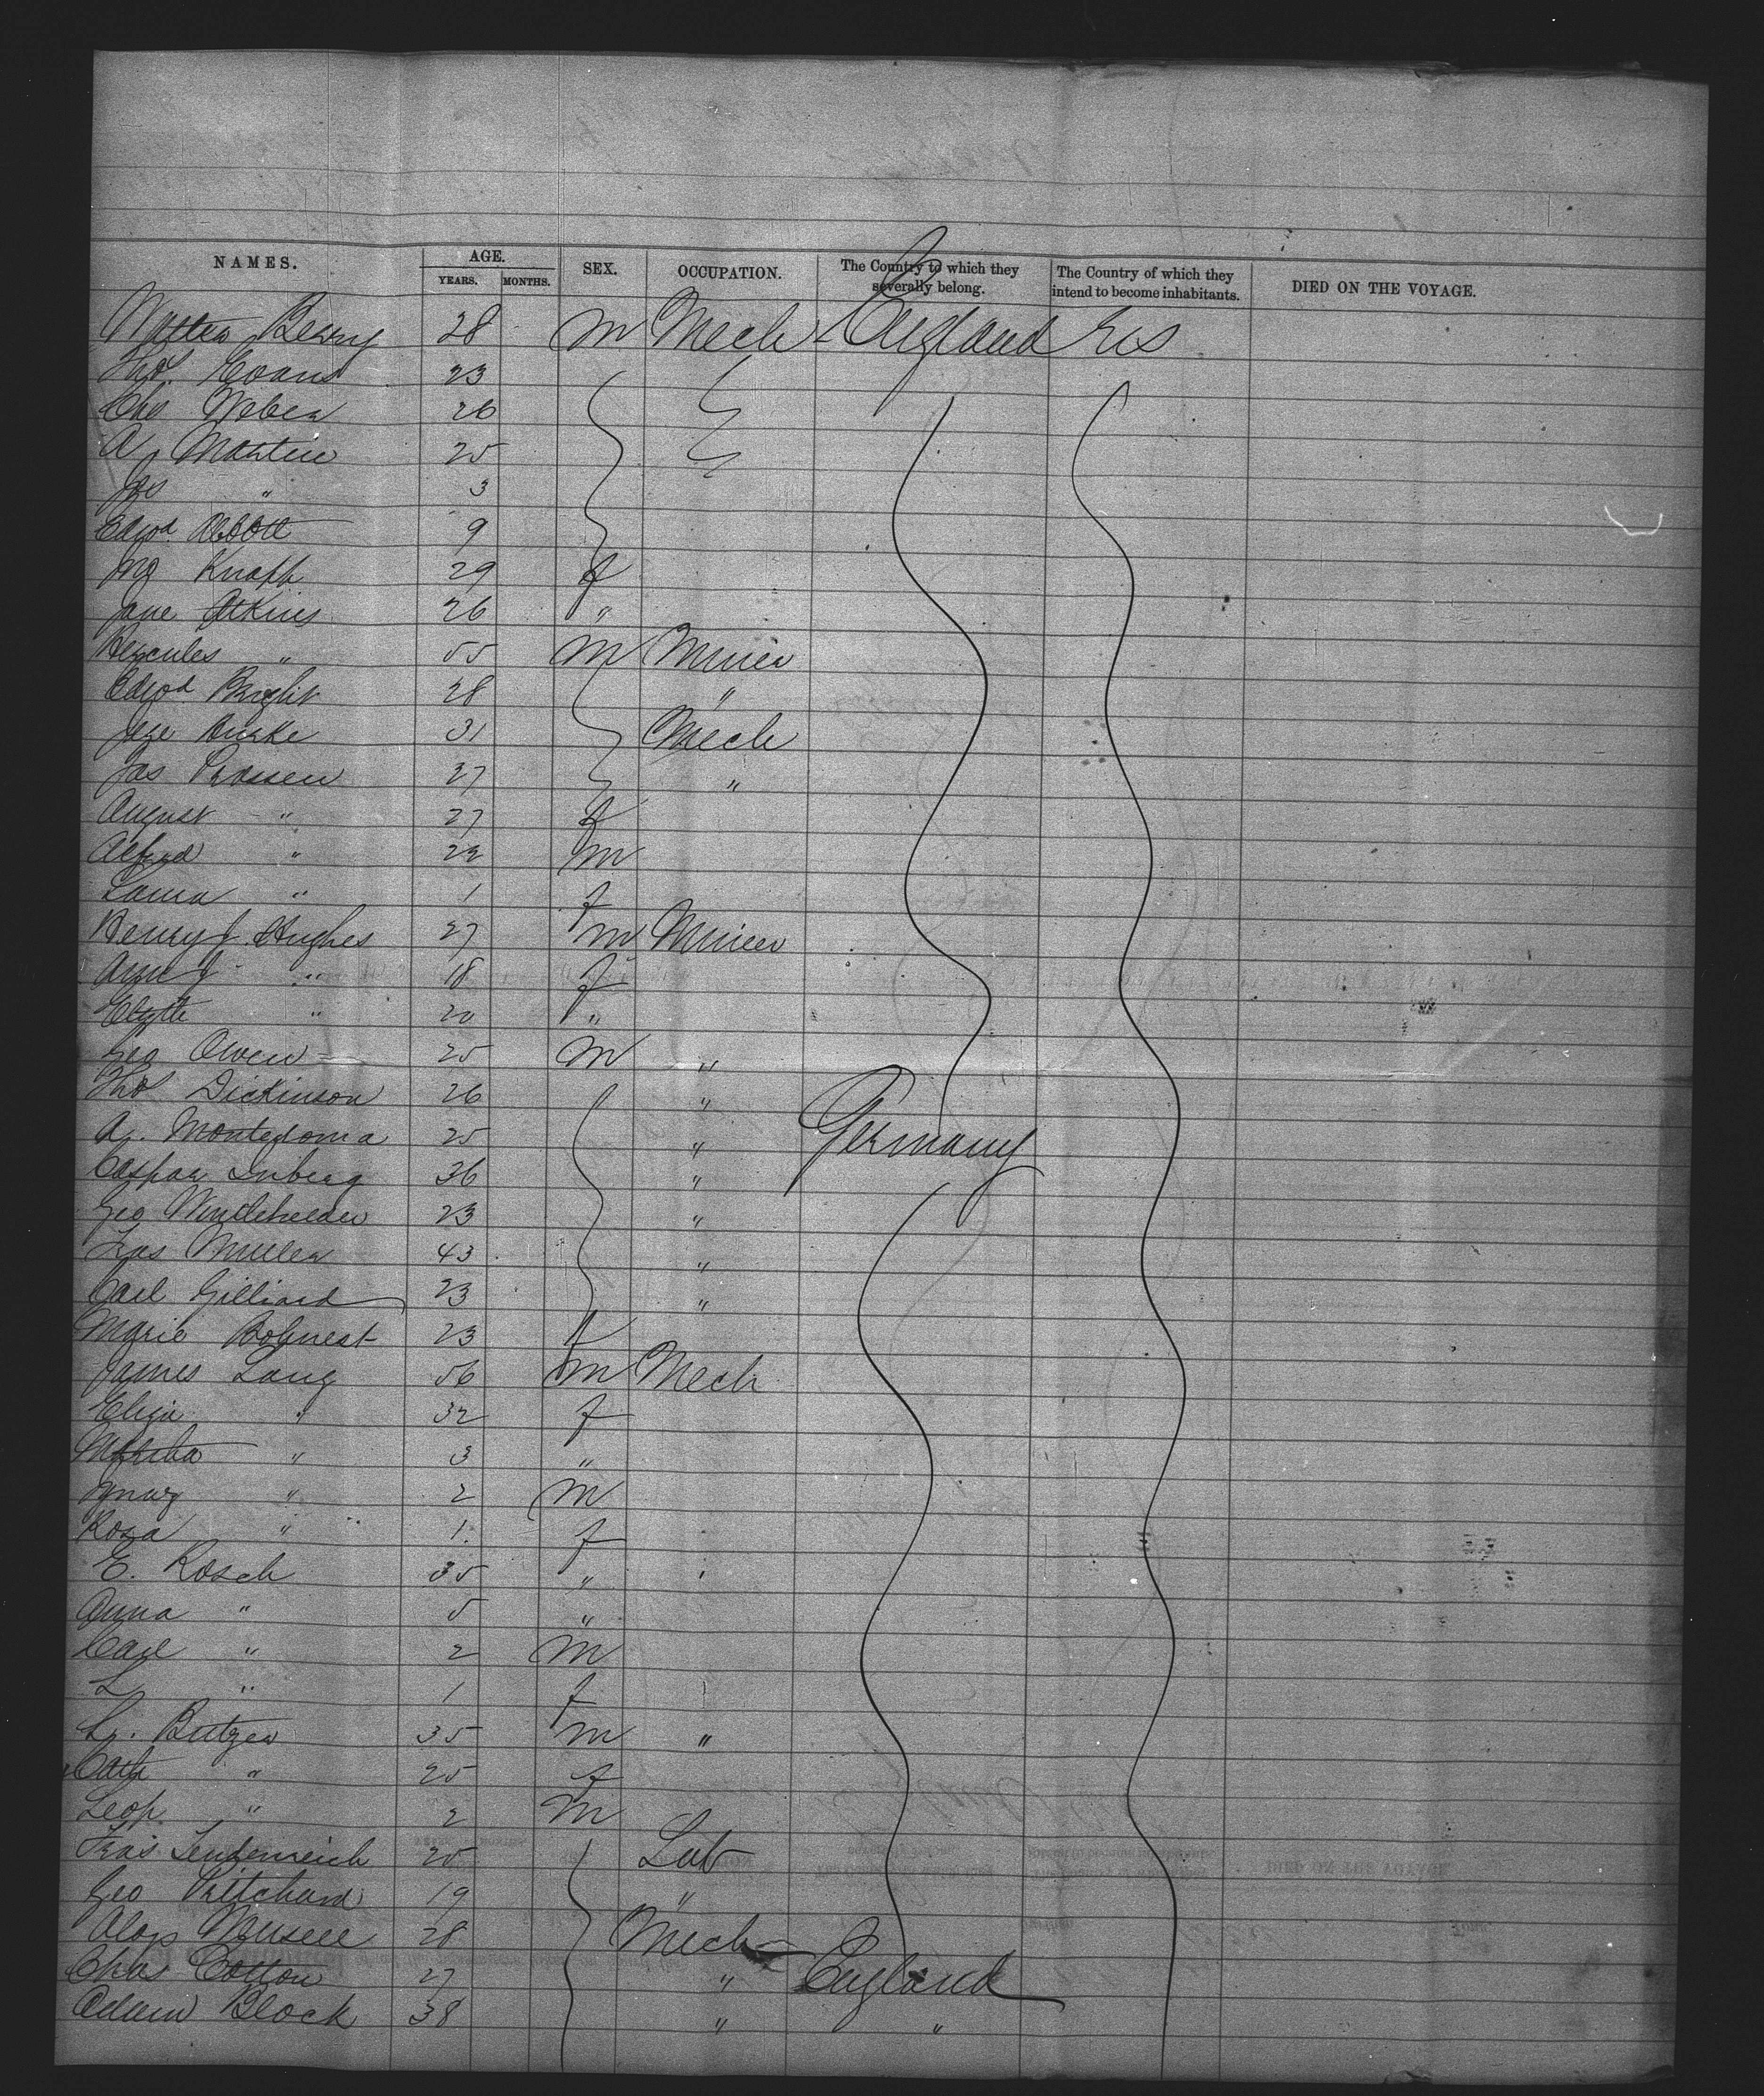 NAMES. AGE. SEX. OCCUPATION. The Country to which they severally belong. The Country of which they intend to become inhabitants. DIED ON THE VOYAGE.
YEARS. MONTHS.
Berry 28 m Mech England
Thos. Evans 23
Chs Weber 26
A Martin 25
Jas " 3
Edwd. Abbott 9
Knapp 29 f
Jane Atkins 26 "
Hercules " 55 m Miner
Edwd Bright 28 "
Burke 31 Mech
Jas 27 "
August " 27 f
Alfred " 22 m
Laura " 1 f
Henry J. Hughes 27 m Miner
Ann J " 18 f
" 20 "
Geo Owen 25 m "
Thos Dickinson 26 "
A. 25 " Germany
Caspar 36 "
Geo 23 "
Fras Muller 43 "
Carl Gilliard 23 "
Marie 23 f
James Lang 56 m Mech
Eliza " 32 f
Martha " 3 "
Ignaz " 2 m
Rosa " 1 f
E. Rosch 35 "
Anna " 5 "
Carl " 2 m
L " 1 f
35 m "
Cath " 25 f
Leop. " 2 m
Fras 25 Lab
Geo Pritchard 19 "
28 Mech
Chas Cotton 27 " England
Adam Block 38 " "